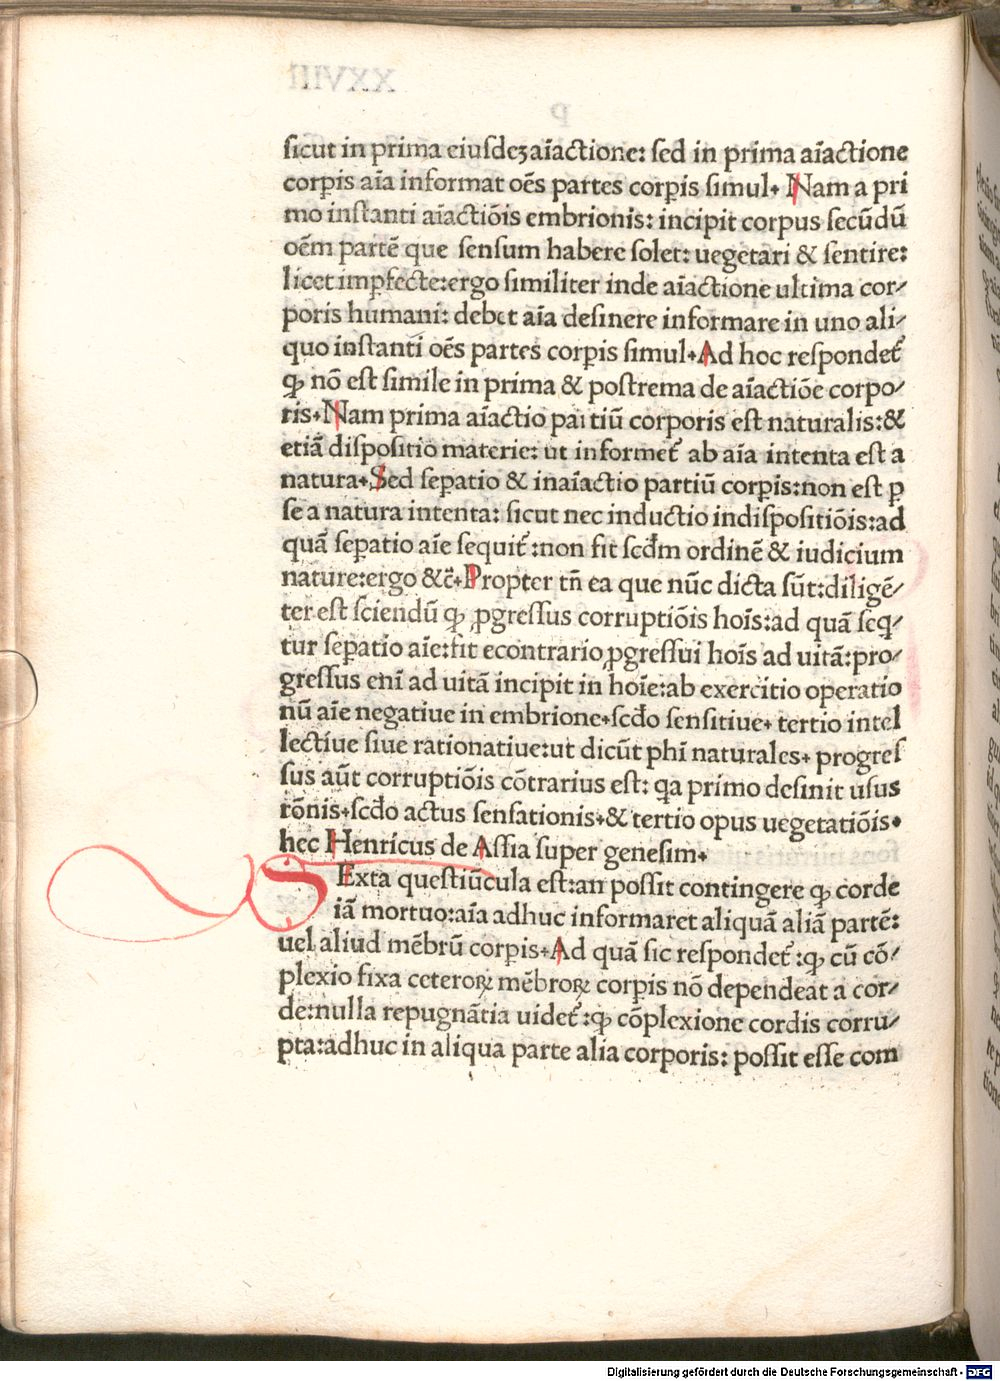 sicut in prima eiusdeꝫ aīactione: sed in prima aīactione
corꝑis aīa informat oēs partes corꝑis simul. Nam a pri
mo instanti aīactiōis embrionis: incipit corpus secūdū
oēm partē que sensum habere solet: uegetari & sentire:
licet imꝑfecte: ergo similiter inde aīactione ultima cor⸗
poris humani: debet aīa desinere informare in uno ali⸗
quo instanti oēs partes corꝑis simul. Ad hoc respondet᷑
ꝙ nō est simile in prima & postrema de aīactiōe corpo⸗
ris. Nam prima aīactio partiū corporis est naturalis: &
etiā dispositio materie: ut informet᷑ ab aīa intenta est a
natura. Sed seꝑatio & inaīactio partiū corꝑis: non est ꝑ
se a natura intenta: sicut nec inductio indispositiōis: ad
quā seꝑatio aīe sequit᷑: non fit scd̄m ordinē & iudicium
nature: ergo &c̄. Propter tn̄ ea que nūc dicta sūt: diligē⸗
ter est sciendū ꝙ ꝓgressus corruptiōis hoīs: ad quā seq⸗
tur seꝑatio aīe: fit econtrario ꝓgressui hoīs ad uitā: pro⸗
gressus enī ad uitā incipit in hoīe: ab exercitio operatio
nū aīe negatiue in embrione. scd̄o sensitiue. tertio intel
lectiue siue rationatiue: ut dicūt phī naturales. progres
sus aūt corruptiōis cōtrarius est: qa primo desinit usus
rōnis. scd̄o actus sensationis. & tertio opus uegetatiōis.
hec Henricus de Assia super genesim.
SExta questiūcula est: an possit contingere ꝙ corde
iā mortuo: aīa adhuc informaret aliquā aliā partē:
uel aliud mēbrū corꝑis. Ad quā sic respondet᷑: ꝙ cū cō⸗
plexio fixa ceteroꝝ mēbroꝝ corꝑis nō dependeat a cor⸗
de: nulla repugnātia uidet᷑: ꝙ cōplexione cordis corru⸗
pta: adhuc in aliqua parte alia corporis: possit esse com
Digitalisierung gefördert durch die Deutsche Forschungsgemeinschaft - DFG